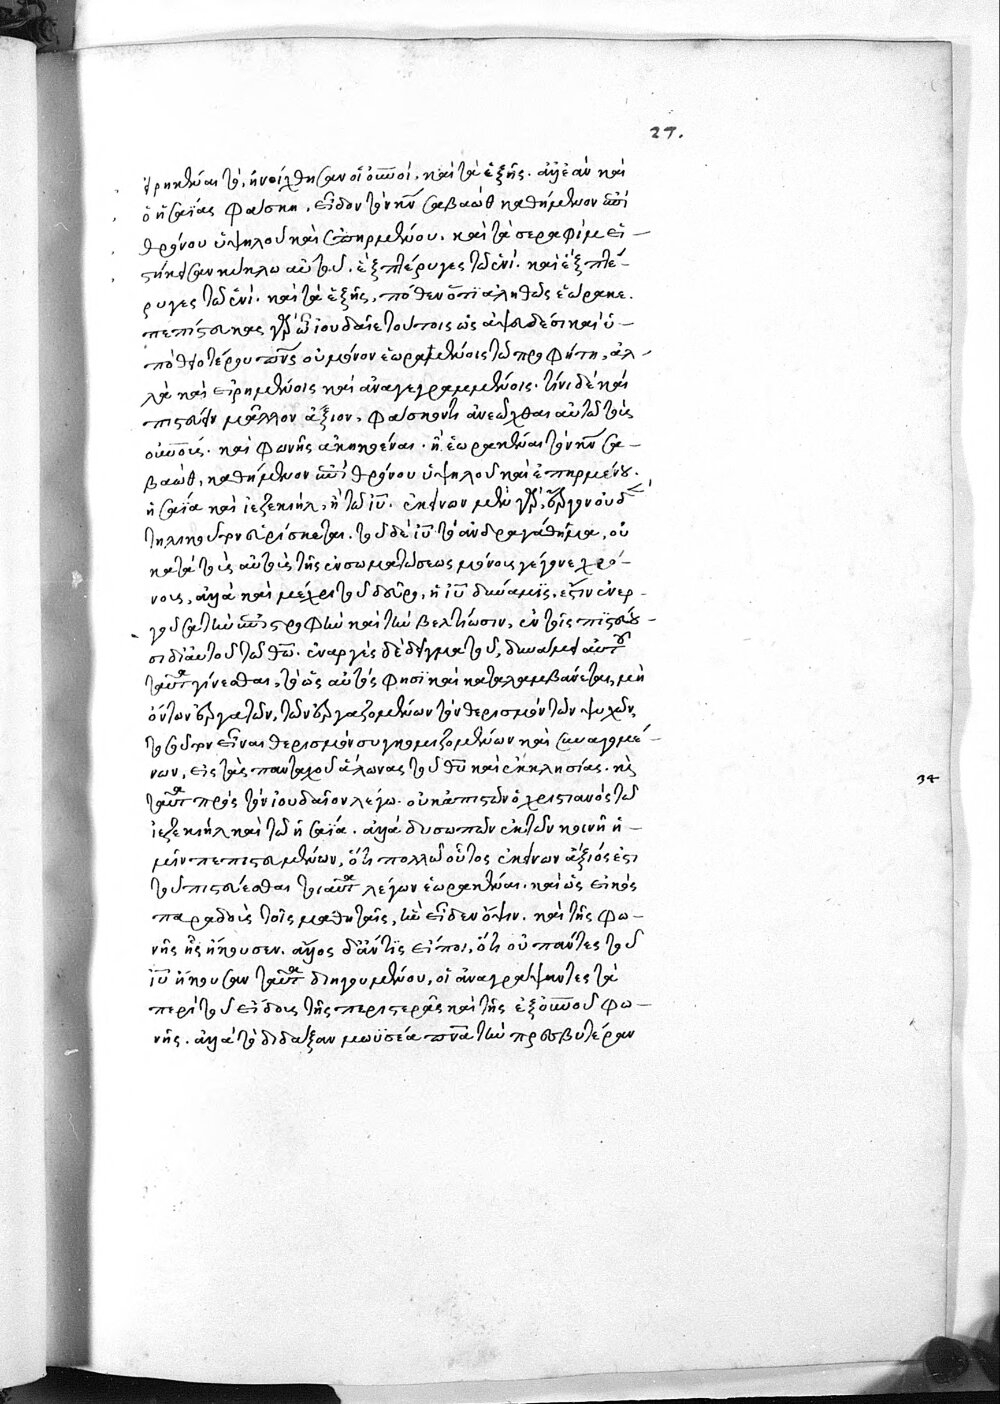 27.
εἰρηκέναι τὸ, ἠνοίχθησαν οἱ οὐνοί, καὶ τὰ ἑξῆς. ἀλλ' ἐὰν καὶ
ὁ ἡσαΐας φάσκῃ, εἶδον τὸν κν σαβαὼθ καθήμενον ἐπὶ
θρόνου ὑψηλοῦ καὶ ἐπηρμένου. καὶ τὰ σεραφὶμ εἱ-
στήκεισαν κύκλῳ αὐτοῦ. ἓξ πτέρυγες τῷ ἑνὶ. καὶ ἓξ πτέ-
ρυγες τῷ ἑνί. καὶ τὰ ἑξῆς, πόθεν ὅτι ἀληθῶς ἑώρακε.
πεπίστευκας γὰρ ὦ ἰουδαῖε τούτοις ὡς ἀψευδέσι καὶ ὑ-
πὸ θειοτέρου πνς οὐ μόνον ἑωραμένοις τῷ προφήτῃ, ἀλ-
λὰ καὶ εἰρημένοις καὶ ἀναγεγραμμένοις. τίνι δὲ καὶ
πιστεύειν μᾶλλον ἄξιον, φάσκοντι ἀνεῷχθαι αὐτῷ τοὺς
οὐνούς. καὶ φωνῆς ἀκηκοέναι. ἢ ἑωρακέναι τὸν κν σα-
βαώθ, καθήμενον ἐπὶ θρόνου ὑψηλοῦ καὶ ἐπηρμένου.
ἡσαΐα καὶ ἰεζεκιὴλ, ἢ τῷ ἰυ. ἐκείνων μὲν γὰρ, ἔργον οὐδὲν
τηλικοῦτον εὑρίσκεται. τοῦ δὲ ἰυ τὸ ἀνδραγάθημα, οὐ
κατὰ τοὺς αὐτοὺς τῆς ἐνσωματώσεως μόνοις γέγονε χρό-
νοις, ἀλλὰ καὶ μέχρι τοῦ δεῦρο, ἡ ἰυ δύναμίς, ἐστιν ἐνερ-
γοῦσα τὴν ἐπιστροφὴν καὶ τὴν βελτίωσιν, ἐν τοῖς πιστεύου-
σι δι' αὐτοῦ τῷ θω. ἐναργὲς δὲ δεῖγμα τοῦ, δυνάμει αὐτοῦ
ταῦτα γίνεσθαι, τὸ ὡς αὐτός φησϊ καὶ καταλαμβάνεται, μὴ
ὄντων ἐργατῶν, τῶν ἐργαζομένων τὸν θερισμὸν τῶν ψυχῶν,
τοσοῦτον εἶναι θερισμὸν συγκομιζομένων καὶ συναγομέ-
νων, εἰς τὰς πανταχοῦ ἅλωνας τοῦ θυ καὶ ἐκκλησίας. καὶ
ταῦτα πρὸς τὸν ἰουδαῖον λέγω. οὐκ ἀπιστῶν ὁ χριστιανὸς τῷ
ἰεζεκιὴλ καὶ τῷ ἡσαΐα. ἀλλὰ δυσωπῶν ἐκ τῶν κοινῇ ἡ-
μῖν πεπιστευμένων, ὅτι πολλῷ οὗτος ἐκείνων ἄξιός ἐστι
τοῦ πιστεύεσθαι τοιαῦτα λέγων ἑωρακέναι. καὶ ὡς εἰκὸς
παραδοὺς τοῖς μαθηταῖς, ἣν εἶδεν ὄψιν. καὶ τῆς φω-
νῆς ἧς ἤκουσεν. ἄλλος δ' ἄν τις εἴποι, ὅτι οὐ πάντες τοῦ
ἰυ ἤκουσαν ταῦτα διηγουμένου, οἱ ἀναγράψαντες τὰ
περὶ τοῦ εἴδους τῆς περιστερᾶς καὶ τῆς ἐξ οὐνοῦ φω-
νῆς. ἀλλὰ τὸ διδάξαν μωϋσέα πνα τὴν πρεσβυτέραν
34